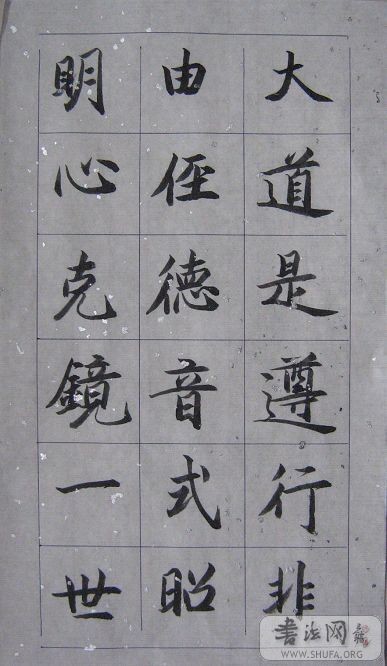 大道是遵行非
由径德音式昭
明心克镜一世
书法网
WWW.SHUFA.ORG